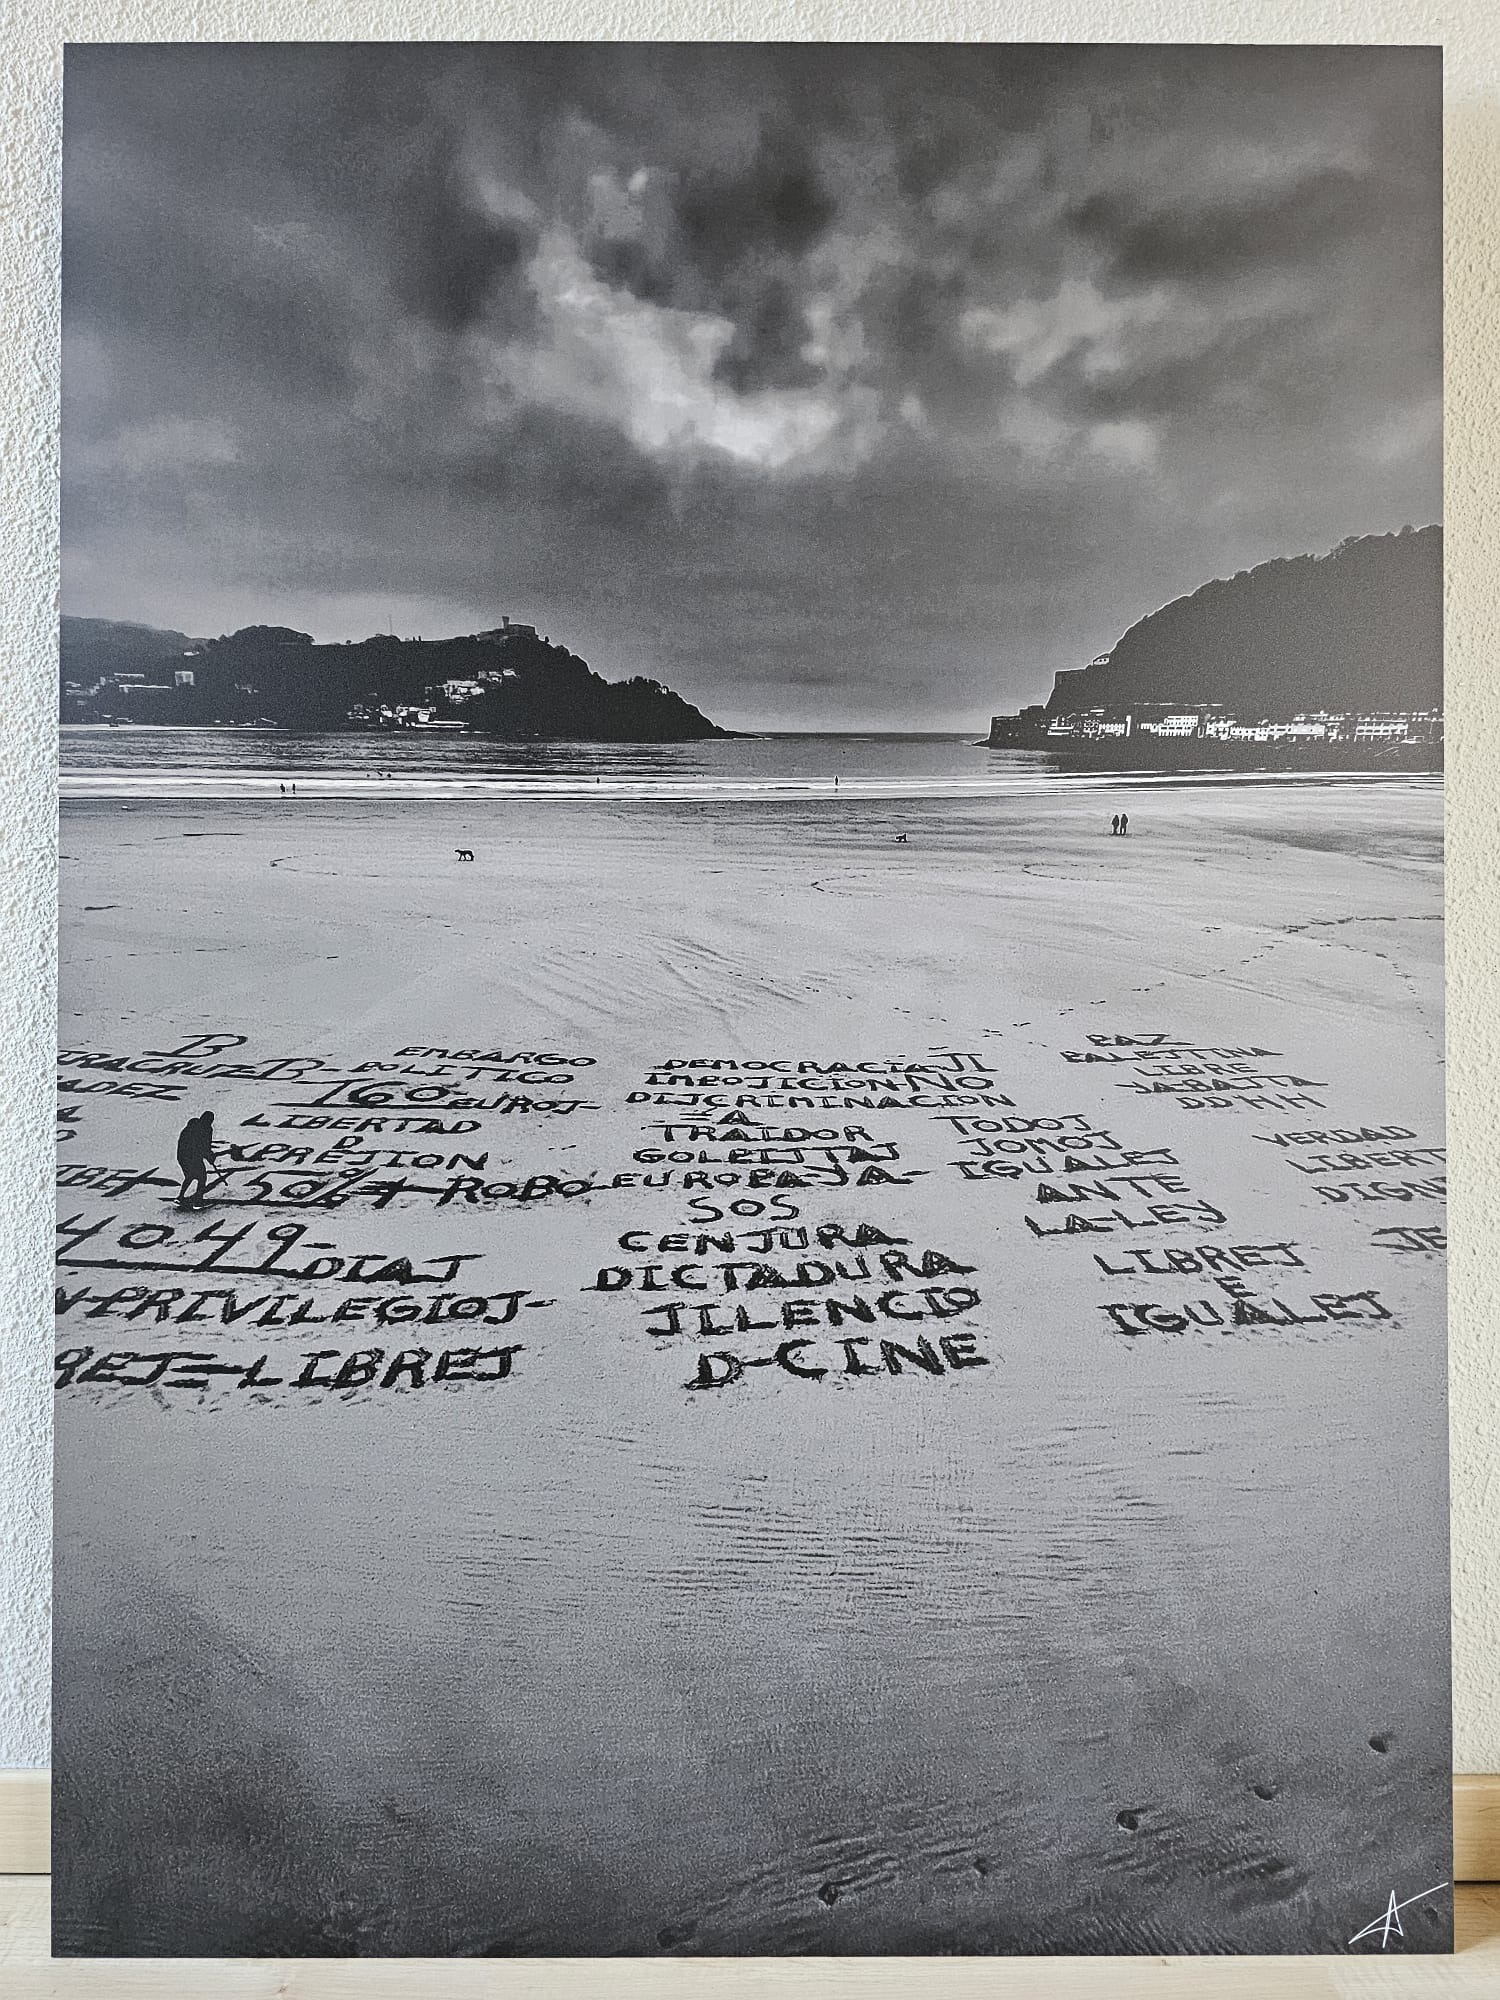 B
URACRUZ-B-
ADEZ
EMBARGO
POLITICO
160-EUROJ-
LIBERTAD
D
EXPREJION
+250%+ ROBO-
4049-
DIAJ
PRIVILEGIOJ-
REJ=LIBREJ
DEMOCRACIA-JI
IMPOJICION-NO
DIJCRIMINACION
A
TRAIDOR
GOLPIJTAJ
EUROPA-YA-
SOS
CENJURA
DICTADURA
JILENCIO
D-CINE
PAZ
PALEJTINA
LIBRE
YA-BAJTA
DDHH
TODOJ
JOMOJ
IGUALEJ
ANTE
LA-LEY
LIBREJ
E
IGUALEJ
VERDAD
LIBERT
DIGN
JE